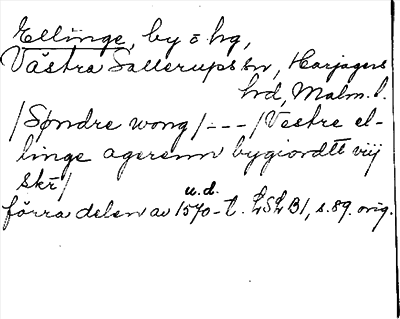 Ellinge, by o hg,
Västra Sallerups sn, Harjagers
hrd, Malm. l.
/Søndre wong/ --- /Vestre el-
linge agerenn bygiordtt viij
skr/
u.d.
förra delen av 1570-t. LSL B1, s. 89. orig.